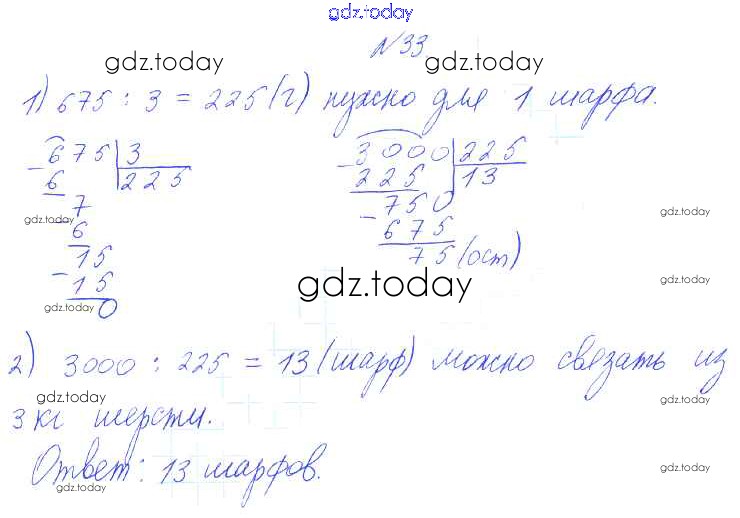 gdz.today
№33
gdz.today gdz.today
1) 675 : 3 = 225 (г) нужно для 1 шарфа.
675 | 3 3000 | 225
- 6 225 - 225 13
gdz.today 7 750 gdz.today
6 - 675
15 75 (ост)
- 15 gdz.today gdz.today
gdz.today 0
2) 3000 : 225 = 13 (шарф) можно связать из
gdz.today gdz.today
3 кг шерсти.
Ответ: 13 шарфов.
gdz.today gdz.today